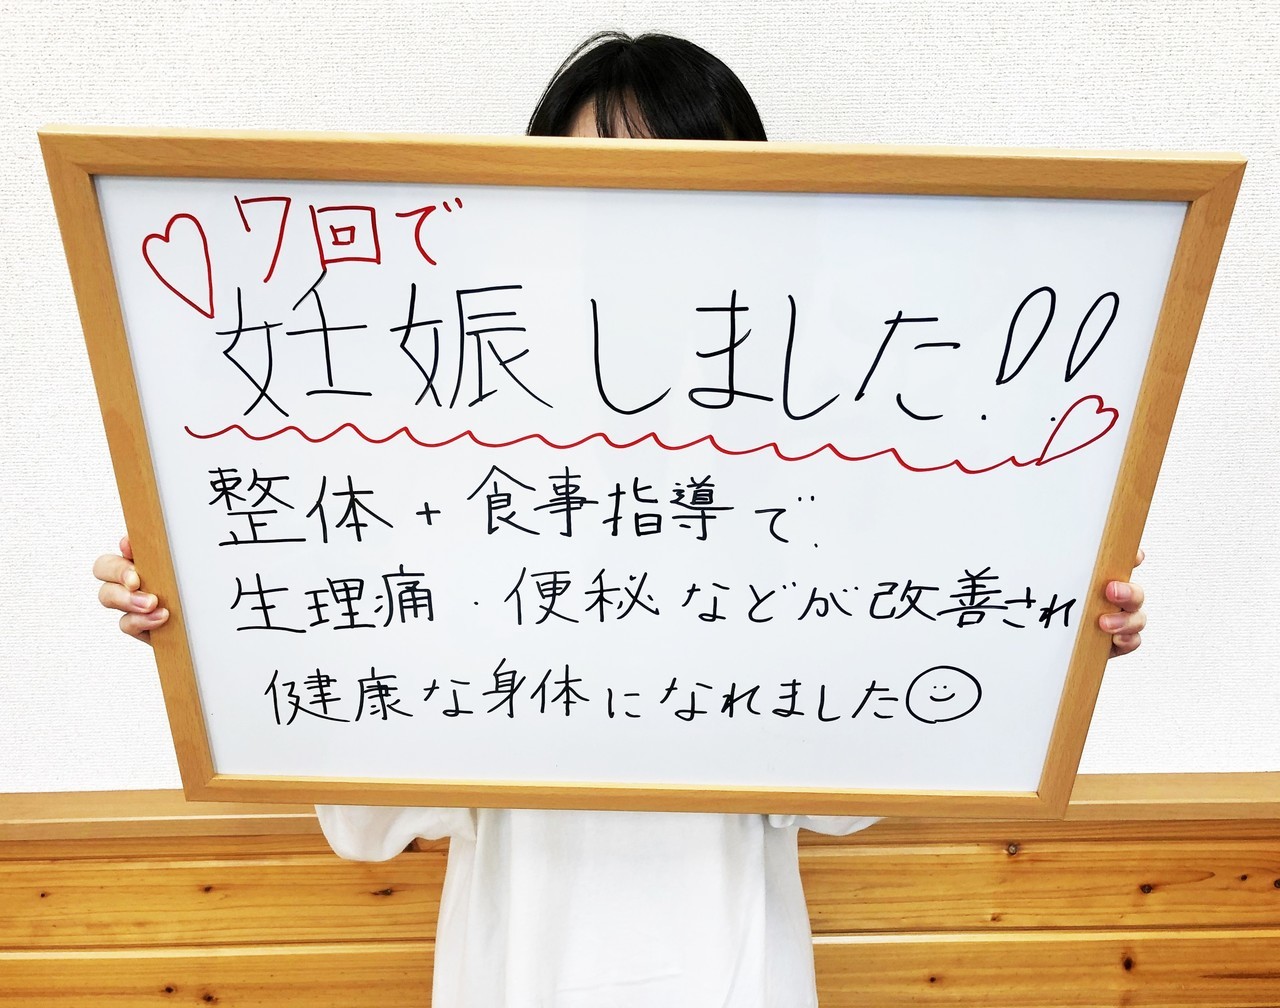 7回で
妊娠しました!!
整体+食事指導で.
生理痛・便秘などが改善され
健康な身体になれました